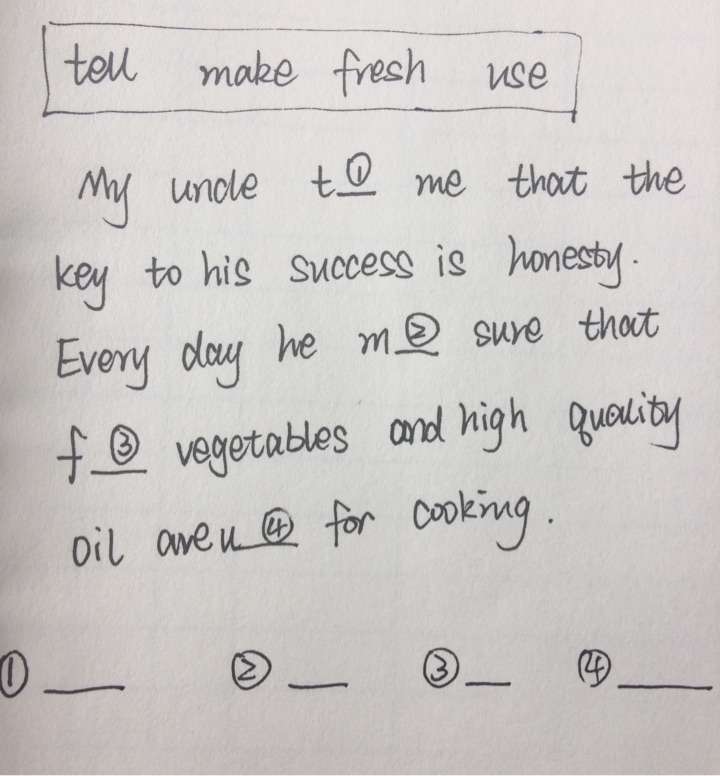 tell make fresh use
My uncle t① me that the
key to his success is honesty.
Every day he m② sure that
f③ vegetables and high quality
oil are u④ for cooking.
① ___ ② ___ ③ ___ ④ ___